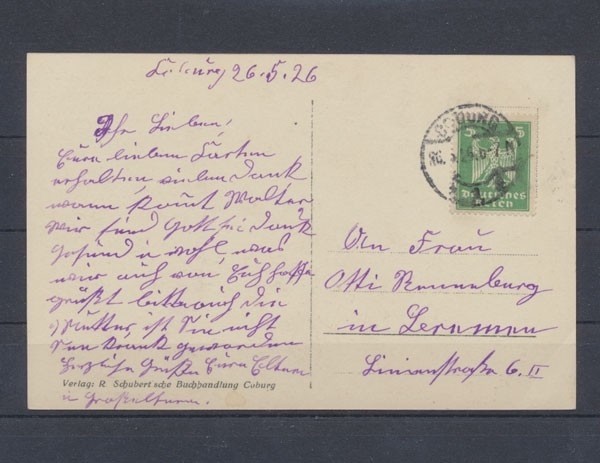 Coburg 26.5.26
Ihr Lieben!
Eure lieben Karten
erhalten, vielen Dank
wann kommt Walter
wir sind Gott sei Dank
gesund u wohl was
wir auch von Euch hoffen
grüßt bitte auch die
Mutter ist Sie nicht
krank geworden
herzliche Grüße Eure Eltern
u Großeltern.
Verlag: R. Schubert'sche Buchhandlung Coburg
COBURG
5 5
Deutsches
Reich
An Frau
Otti
in
Linienstraße 6. II